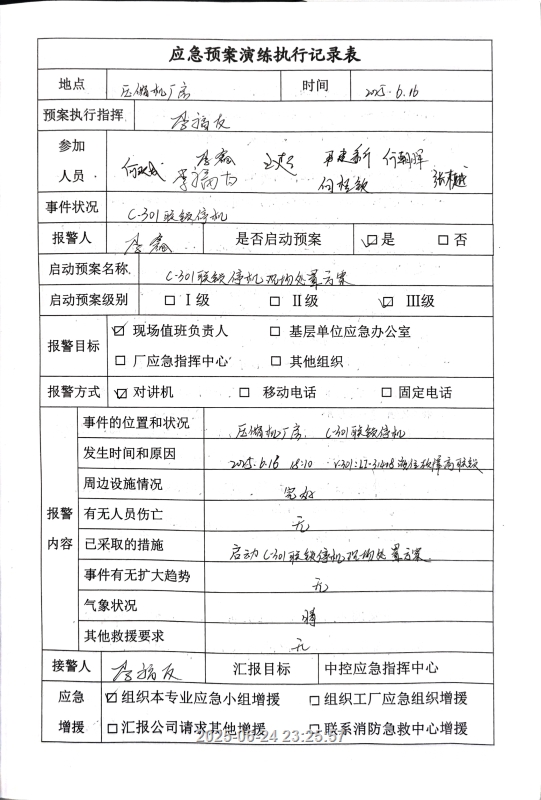 应急预案演练执行记录表
地点 压缩机厂房 时间 2025.6.16
预案执行指挥 李福友
参加
人员
事件状况 C-301联锁停机
报警人 李鑫 是否启动预案 ☑是 □否
启动预案名称 C-301联锁停机现场处置方案
启动预案级别 □Ⅰ级 □Ⅱ级 ☑Ⅲ级
报警目标 ☑现场值班负责人 □基层单位应急办公室
□厂应急指挥中心 □其他组织
报警方式 ☑对讲机 □移动电话 □固定电话
报警
内容
事件的位置和状况 压缩机厂房 C-301联锁停机
发生时间和原因 2025.6.16 18:10 V-301:LI-31408液位故障高联锁
周边设施情况 完好
有无人员伤亡 无
已采取的措施 启动C-301联锁停机现场处置方案。
事件有无扩大趋势 无
气象状况
其他救援要求 无
接警人 李福友 汇报目标 中控应急指挥中心
应急 ☑组织本专业应急小组增援 □组织工厂应急组织增援
增援 □汇报公司请求其他增援 □联系消防急救中心增援
2025-06-24 23:25:57